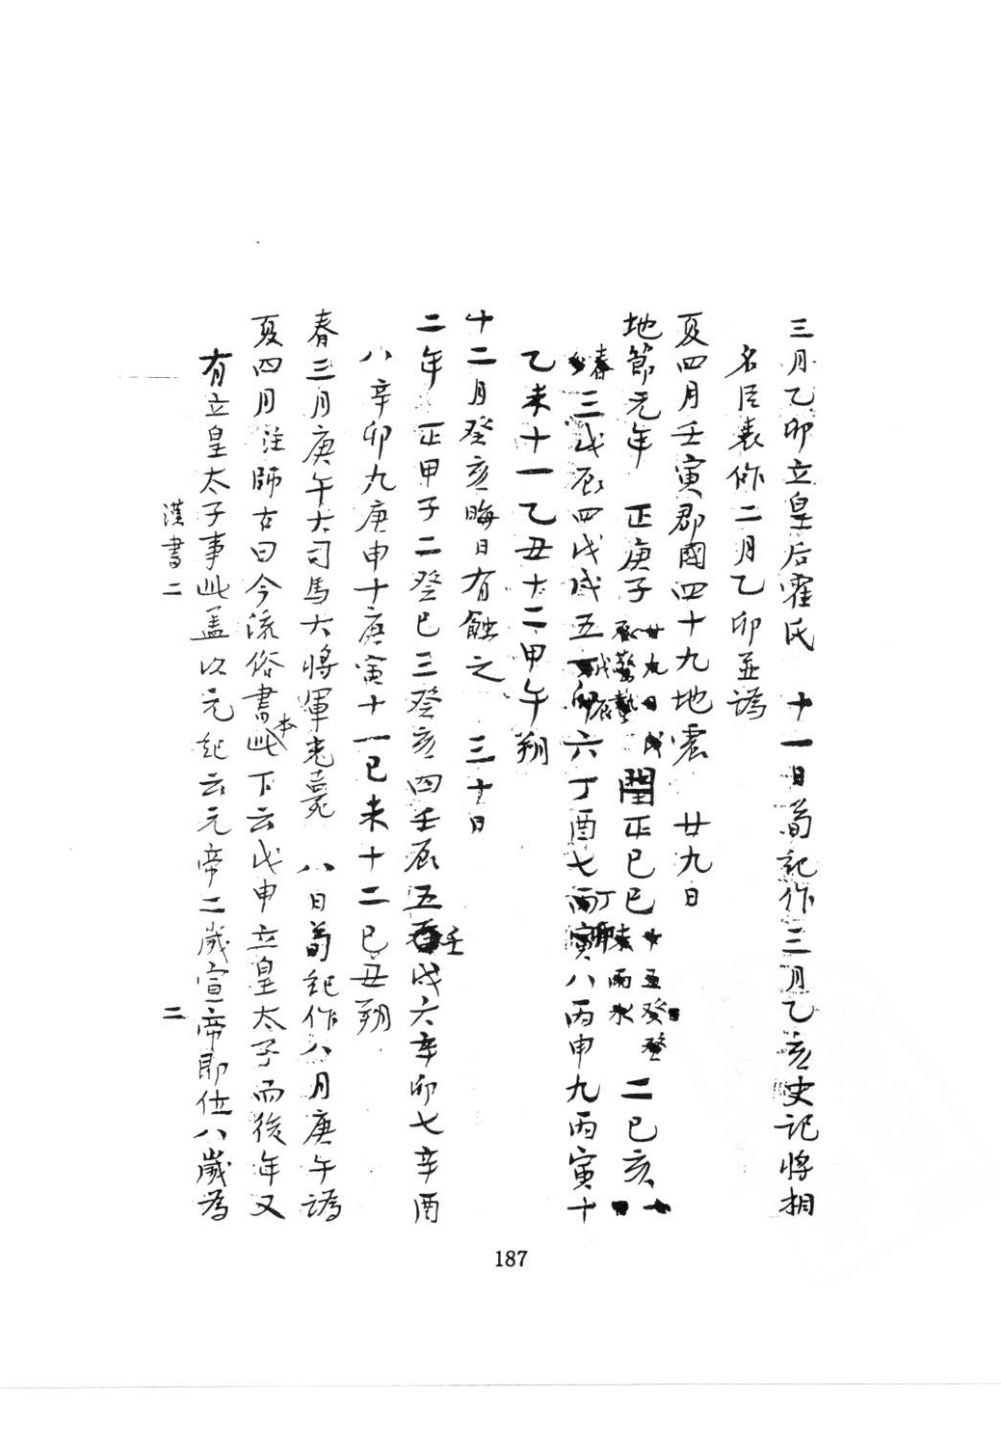 三月乙卯立皇后霍氏　十一日荀記作三月乙亥史記將相
名臣表作二月乙卯並譌
夏四月壬寅郡國四十九地震　廿九日
地節元年　正庚子　廿九日戊辰驚蟄　閏正己巳　十五癸　雨水　二己亥
春三戊辰四戊戌五丁卯六丁酉七丙寅八丙申九丙寅十
乙未十一乙丑十二甲午朔
十二月癸亥晦日有蝕之　三十日
二年　正甲子二癸巳三癸亥四壬辰五壬戌六辛卯七辛酉
八辛卯九庚申十庚寅十一己未十二己丑朔
春三月庚午大司馬大將軍光薨　八日荀記作八月庚午譌
夏四月注師古曰今流俗書本此下云戊申立皇太子而後年又
有立皇太子事此蓋以元紀云元帝二歲宣帝即位八歲為
漢書二
二
187